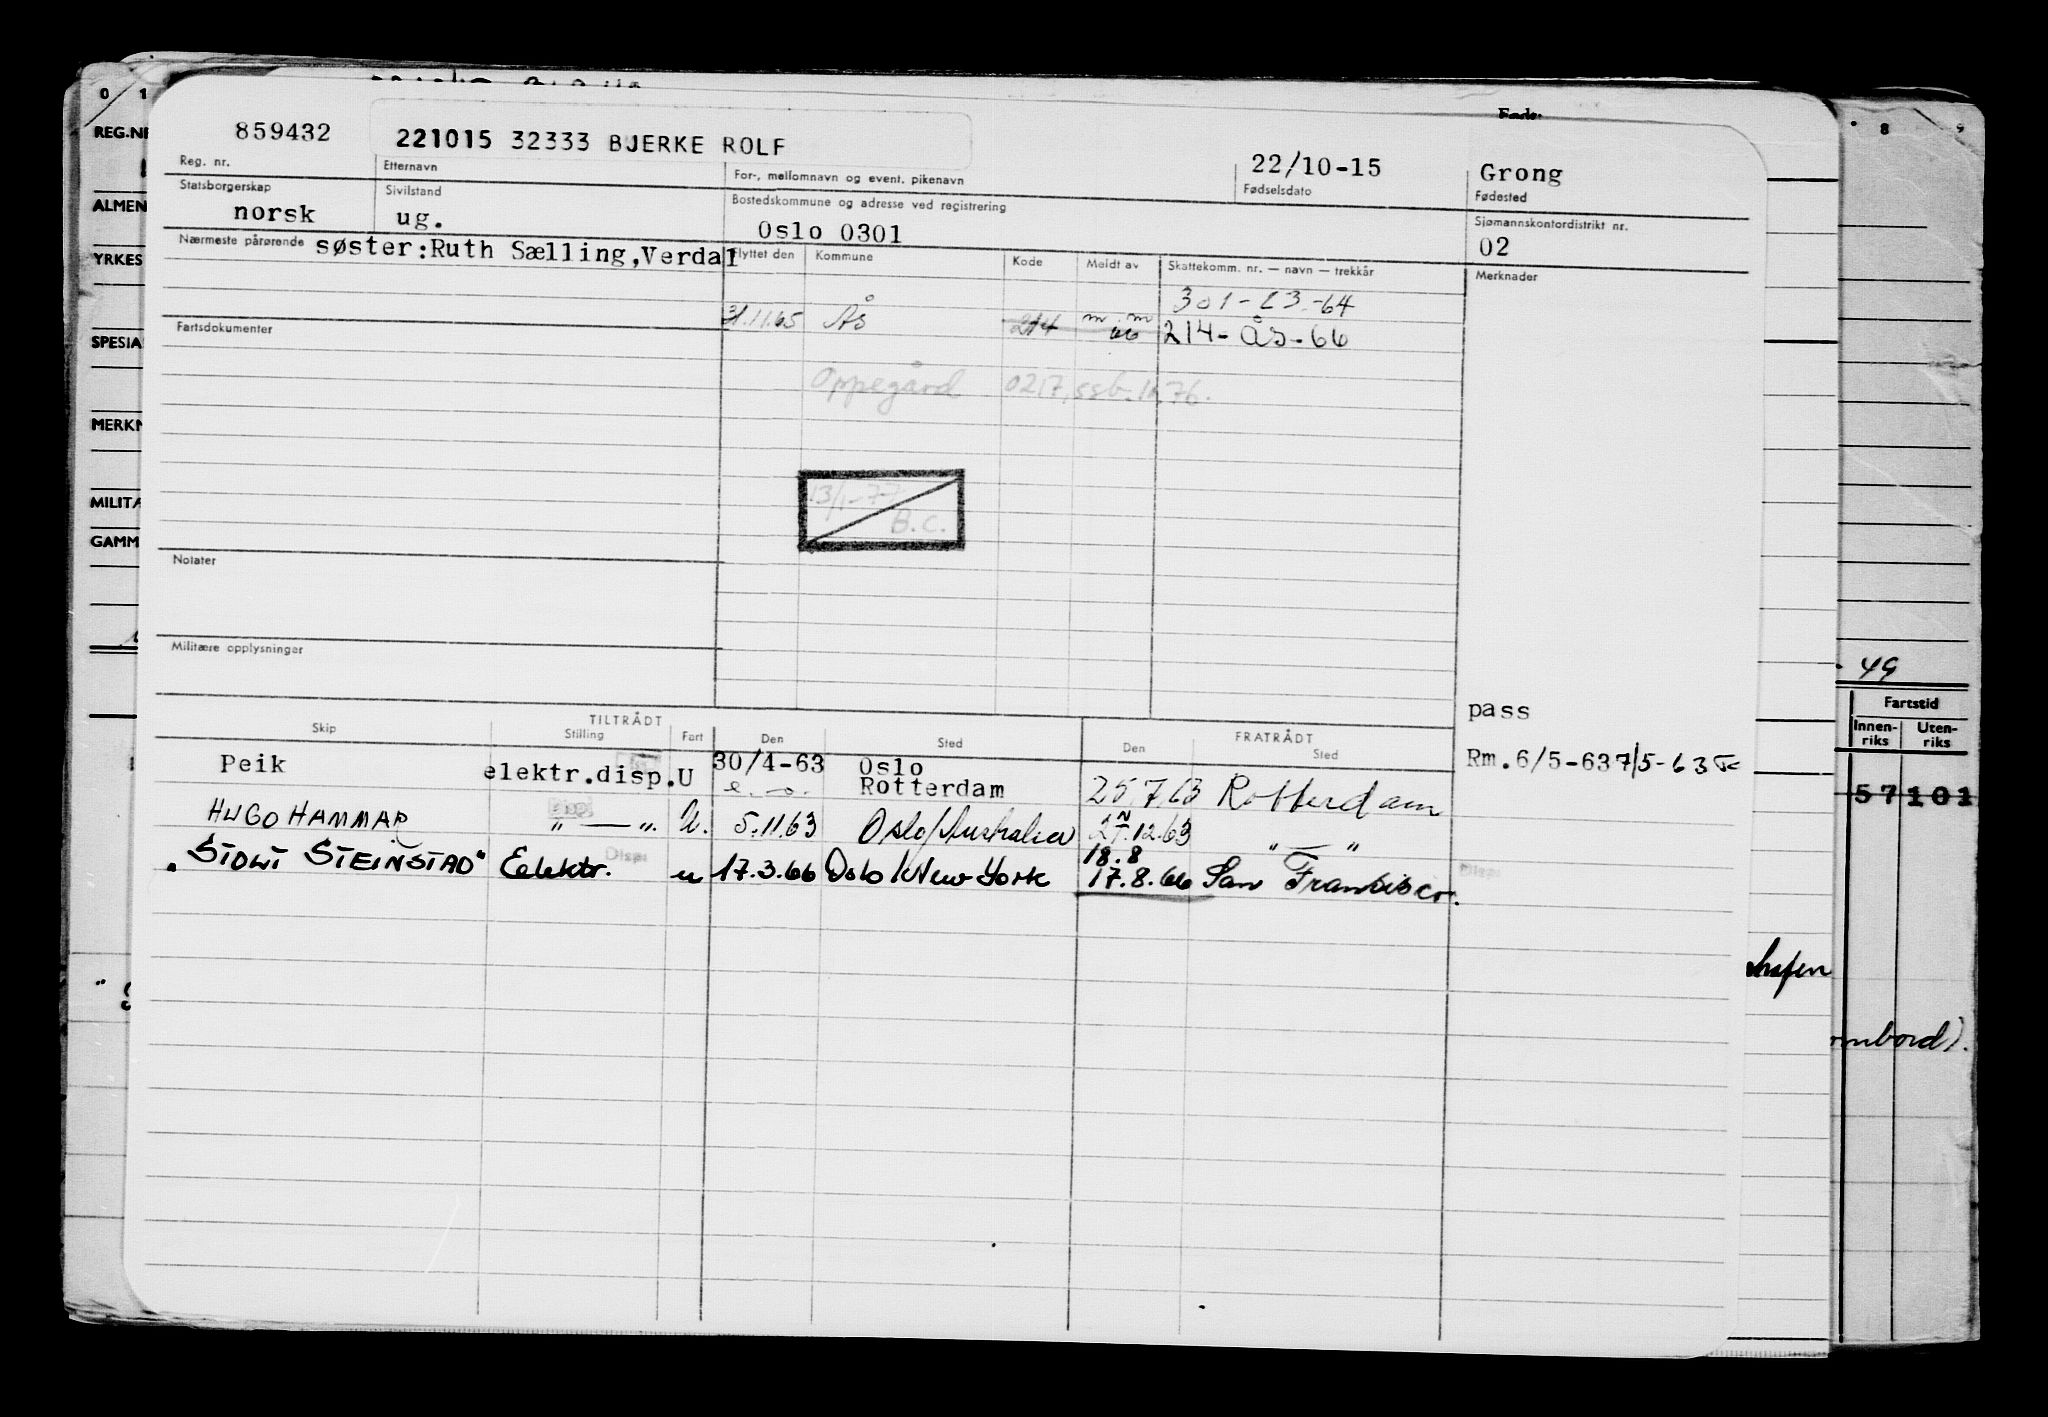 0 1
8 9
Født:
REG.NR
ALMEN
YRKES
SPESIA
MERKN
MILITÆ
GAMM
859432 221015 32333 BJERKE ROLF 22/10-15 Grong
Reg. nr. Etternavn For-, mellomnavn og event. pikenavn Fødselsdato Fødested
Statsborgerskap Sivilstand Bostedskommune og adresse ved registrering Sjømannskontordistrikt nr.
norsk ug. Oslo 0301 02
Nærmeste pårørende søster:Ruth Sælling,Verdal Flyttet den Kommune Kode Meldt av Skattekomm. nr. — navn — trekkår Merknader
301-63-64
Fartsdokumenter 31.11.65 Ås 214 m.m 66 214-ÅS-66
Oppegård 0217, ssb. 76.
13/1-77
B.C.
Notater
Militære opplysninger
49
pass
Fartstid
Innen-riks Uten-riks
TILTRÅDT FRATRÅDT
Skip Stilling Fart Den Sted Den Sted
Peik elektr.disp.U 30/4-63 Oslo Rm.6/5-63 7/5-63
Rotterdam 25.7.63 Rotterdam
57 101
HUGO HAMMAR " — ". U. 5.11.63 Oslo/Australia 27.12.63 " — "
18.8
"SIDVI STEINSTAD" Elektr. Disp. u 17.3.66 Oslo/New York 17.8.66 San Fransisco. Disp.
havn
ombord).